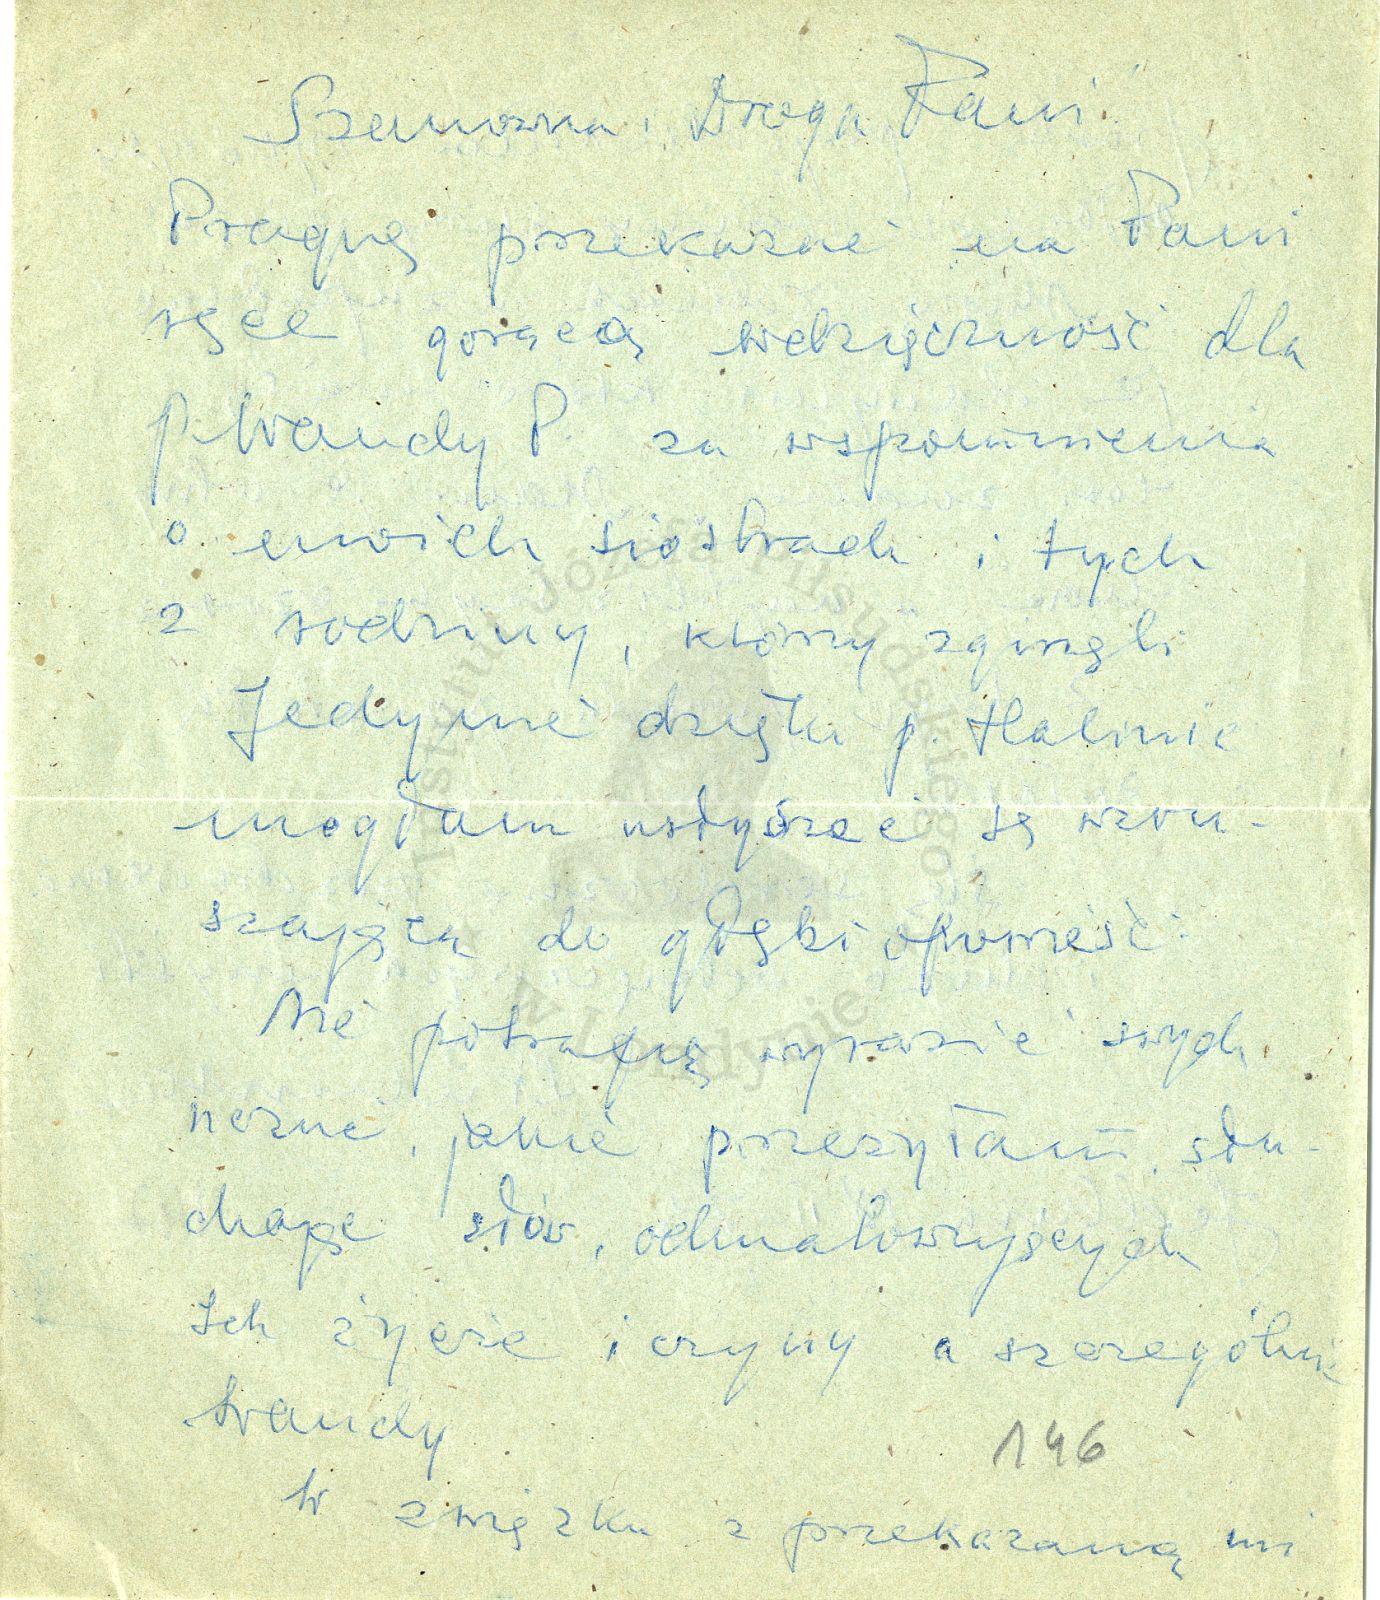 Szanowna, Droga Pani!
Pragnę przekazać na Pani
ręce gorącą wdzięczność dla
p. Wandy P. za wspomnienia
o moich siostrach i tych
z rodziny, którzy zginęli
Jedynie dzięki p. Halinie
mogłam usłyszeć tę wzru-
szającą do głębi opowieść.
Nie potrafię wyrazić swych
uczuć, jakie przeżyłam, słu-
chając słów, odmalowujących
Ich życie i czyny a szczególnie
Wandy
146
W związku z przekazaną mi
Instytut Józefa Piłsudskiego
w Londynie